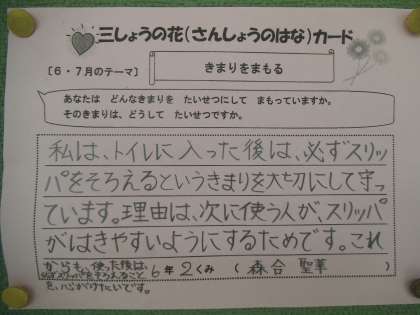 三しょうの花(さんしょうのはな)カード
[6・7月のテーマ]
きまりをまもる
あなたは どんなきまりを たいせつにして まもっていますか。
そのきまりは、どうして たいせつですか。
私は、トイレに入った後は、必ずスリッ
パをそろえるというきまりを大切にして守っ
ています。理由は、次に使う人が、スリッパ
がはきやすいようにするためです。これ
からも、使った後は、
必ずスリッパをそろえること
を、心がけたいです。
6年 2くみ ( 森合 聖華 )